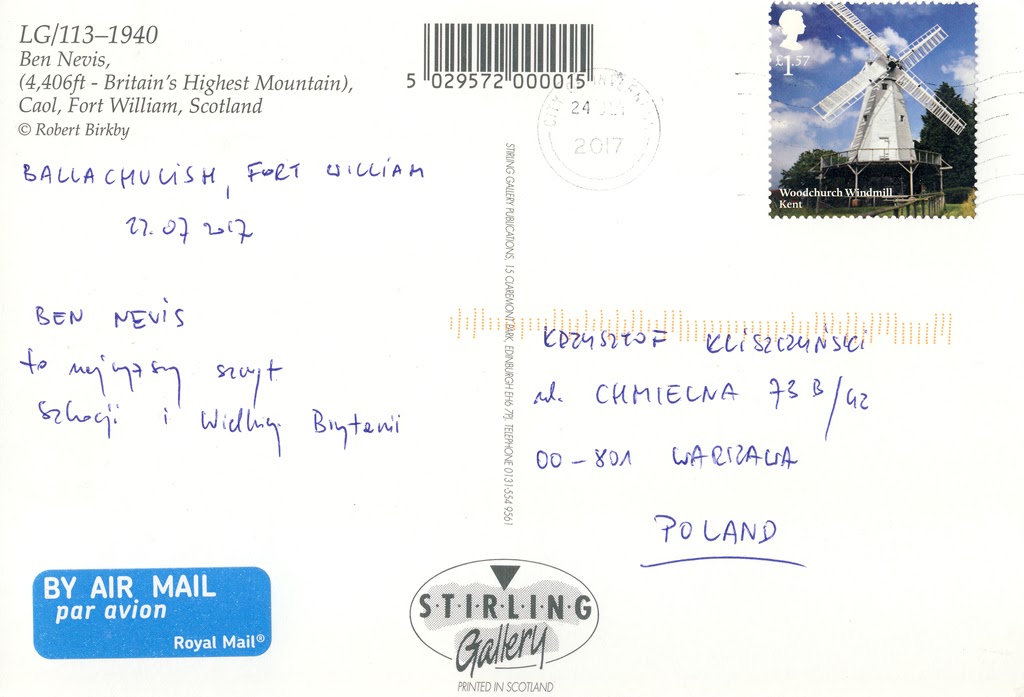 LG/113–1940
Ben Nevis,
(4,406ft - Britain's Highest Mountain),
Caol, Fort William, Scotland
© Robert Birkby
5 029572 000015
24
2017
£1.57
Woodchurch Windmill
Kent
BALLACHULISH, FORT WILLIAM
.07 2017
BEN NEVIS
to najwyższy szczyt
Szkocji i Wielkiej Brytanii
STIRLING GALLERY PUBLICATIONS, 15 CLAREMONT PARK, EDINBURGH EH6 7PJ TELEPHONE 0131-554 9561
KRZYSZTOF KLISZCZYŃSKI
ul. CHMIELNA 73 B/42
00-801 WARSZAWA
POLAND
BY AIR MAIL
par avion
Royal Mail®
S·T·I·R·L·I·N·G
Gallery
PRINTED IN SCOTLAND